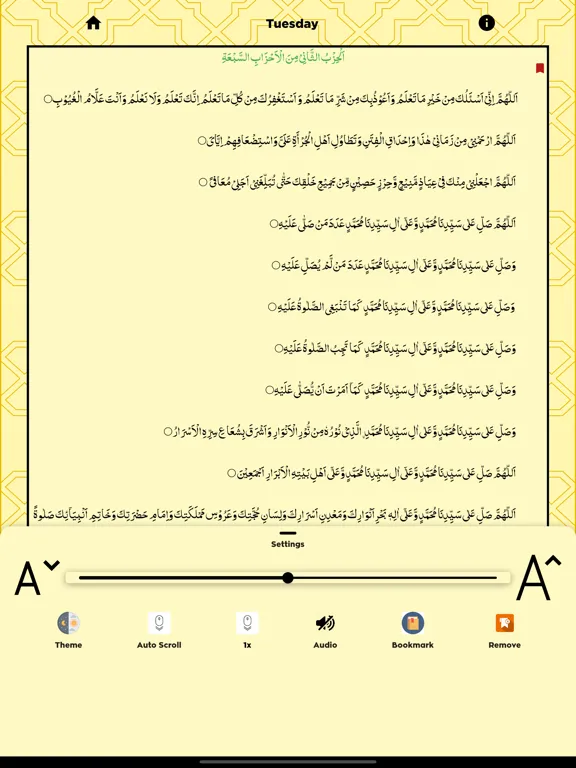 Tuesday
اَلْحِزْبُ الثَّانِيْ مِنَ الْاَحْزَابِ السَّبْعَةِ
اَللّٰهُمَّ اِنِّيْ اَسْئَلُكَ مِنْ خَيْرِ مَا تَعْلَمُ وَاَعُوْذُبِكَ مِنْ شَرِّ مَا تَعْلَمُ وَ اَسْتَغْفِرُكَ مِنْ كُلِّ مَا تَعْلَمُ اِنَّكَ تَعْلَمُ وَلَا نَعْلَمُ وَاَنْتَ عَلَّامُ الْغُيُوْبِ○
اَللّٰهُمَّ ارْحَمْنِيْ مِنْ زَمَانِيْ هٰذَا وَاِحْدَاقِ الْفِتَنِ وَتَطَاوُلِ اَهْلِ الْجُرْأَةِ عَلَيَّ وَاسْتِضْعَافِهِمْ اِيَّايَ○
اَللّٰهُمَّ اجْعَلْنِيْ مِنْكَ فِيْ عِيَاذٍ مَّنِيْعٍ وَّحِرْزٍ حَصِيْنٍ مِّنْ جَمِيْعِ خَلْقِكَ حَتّٰى تُبَلِّغَنِيْ اَجَلِيْ مُعَافًى○
اَللّٰهُمَّ صَلِّ عَلٰى سَيِّدِنَا مُحَمَّدٍ وَّعَلٰى اٰلِ سَيِّدِنَا مُحَمَّدٍ عَدَدَ مَنْ صَلّٰى عَلَيْهِ○
وَصَلِّ عَلٰى سَيِّدِنَا مُحَمَّدٍ وَّعَلٰى اٰلِ سَيِّدِنَا مُحَمَّدٍ عَدَدَ مَنْ لَّمْ يُصَلِّ عَلَيْهِ○
وَصَلِّ عَلٰى سَيِّدِنَا مُحَمَّدٍ وَّعَلٰى اٰلِ سَيِّدِنَا مُحَمَّدٍ كَمَا تَنْبَغِي الصَّلٰوةُ عَلَيْهِ○
وَصَلِّ عَلٰى سَيِّدِنَا مُحَمَّدٍ وَّعَلٰى اٰلِ سَيِّدِنَا مُحَمَّدٍ كَمَا تَجِبُ الصَّلٰوةُ عَلَيْهِ○
وَصَلِّ عَلٰى سَيِّدِنَا مُحَمَّدٍ وَّعَلٰى اٰلِ سَيِّدِنَا مُحَمَّدٍ كَمَا اَمَرْتَ اَنْ يُّصَلّٰى عَلَيْهِ○
وَصَلِّ عَلٰى سَيِّدِنَا مُحَمَّدٍ وَّعَلٰى اٰلِ سَيِّدِنَا مُحَمَّدٍ الَّذِيْ نُوْرُهٗ مِنْ نُّوْرِ الْاَنْوَارِ وَاَشْرَقَ بِشُعَاعِ سِرِّهِ الْاَسْرَارُ○
اَللّٰهُمَّ صَلِّ عَلٰى سَيِّدِنَا مُحَمَّدٍ وَّعَلٰى اٰلِ سَيِّدِنَا مُحَمَّدٍ وَّعَلٰى اَهْلِ بَيْتِهِ الْاَبْرَارِ اَجْمَعِيْنَ○
اَللّٰهُمَّ صَلِّ عَلٰى سَيِّدِنَا مُحَمَّدٍ وَّعَلٰى اٰلِهٖ بَحْرِ اَنْوَارِكَ وَمَعْدِنِ اَسْرَارِكَ وَلِسَانِ حُجَّتِكَ وَعَرُوْسِ مَمْلَكَتِكَ وَاِمَامِ حَضْرَتِكَ وَخَاتِمِ اَنْبِيَائِكَ صَلٰوةً
Settings
A A
Theme Auto Scroll 1x Audio Bookmark Remove